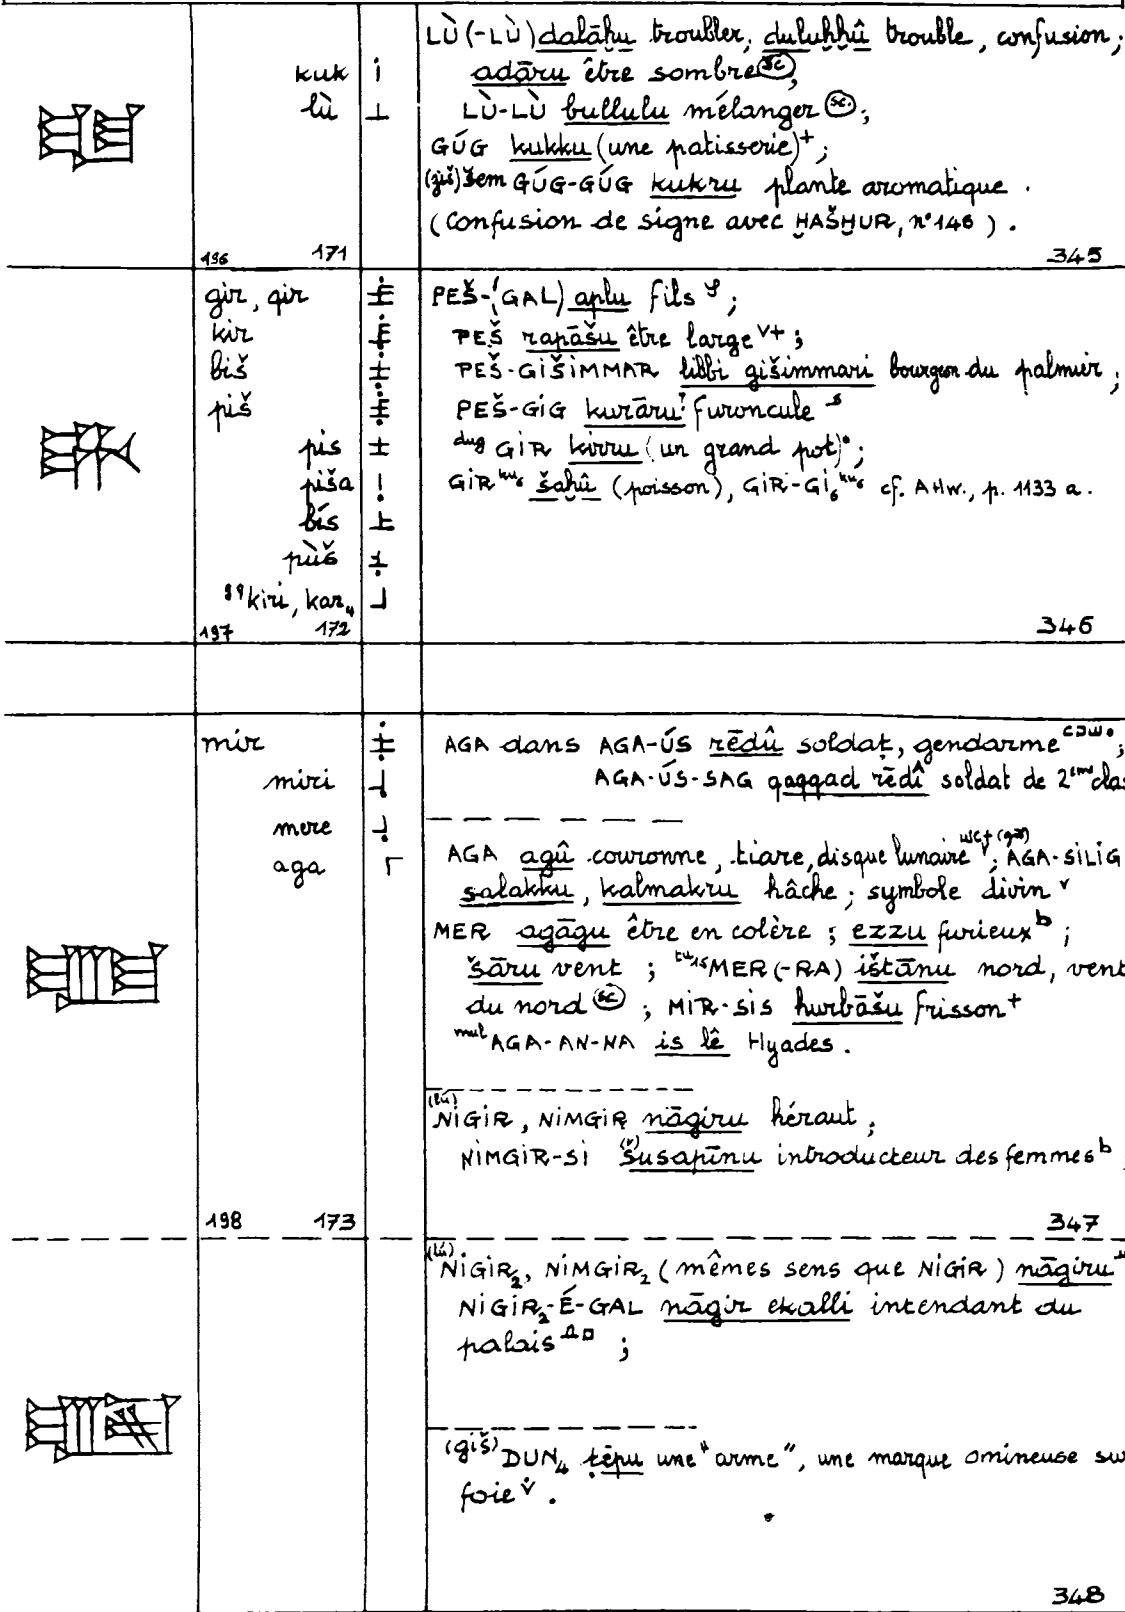 LÙ(-LÙ) dalāḫu troubler, duluḫḫû trouble, confusion;
kuk adāru être sombre sc,
lù LÙ-LÙ bullulu mélanger sc.;
GÚG kukku (une patisserie)+;
(giš)šem GÚG-GÚG kukru plante aromatique.
(confusion de signe avec ḪAŠḪUR, n°146).
196 171 345
gir, qir PEŠ-(GAL) aplu fils;
kir PEŠ rapāšu être large v+;
biš PEŠ-GIŠIMMAR libbi gišimmari bourgeon du palmier;
piš PEŠ-GIG kurāru? furoncle
pis dug GIR kirru (un grand pot)•;
piša GIR ku6 šaḫû (poisson), GIR-GI6 ku6 cf. AHw., p. 1133 a.
bís
pùš
kiri, kar4
197 172 346
mir AGA dans AGA-ÚS rēdû soldat, gendarme;
miri AGA-ÚS-SAG qaqqad rēdî soldat de 2ème clas
mere
aga AGA agû couronne, tiare, disque lunaire; AGA-SILIG
salakku, kalmakru hâche; symbole divin v
MER agāgu être en colère; ezzu furieux b;
šāru vent; tu15 MER(-RA) ištānu nord, vent
du nord sc; MIR-SIS ḫurbāšu frisson+
mul AGA-AN-NA is lê Hyades.
(lú) NIGIR, NIMGIR nāgiru héraut;
NIMGIR-SI šusapīnu introducteur des femmes b;
198 173 347
(lú) NIGIR2, NIMGIR2 (mêmes sens que NIGIR) nāgiru
NIGIR2-É-GAL nāgir ekalli intendant du
palais;
(giš) DUN4 ṭēpu une "arme", une marque omineuse su
foie v.
348